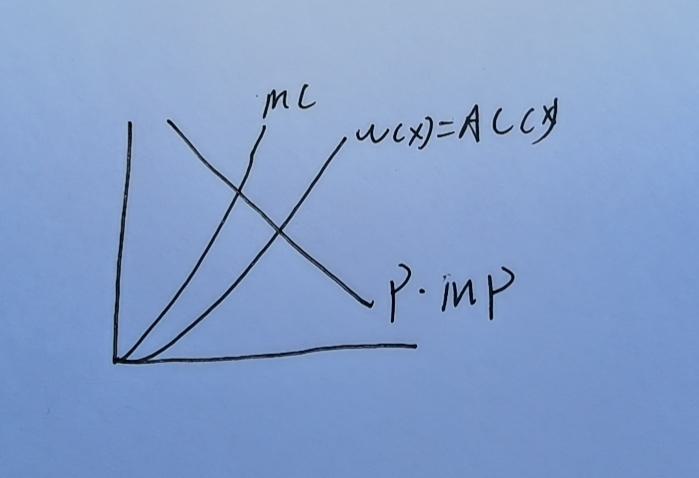 MC
w(x)=AC(x)
P·MP